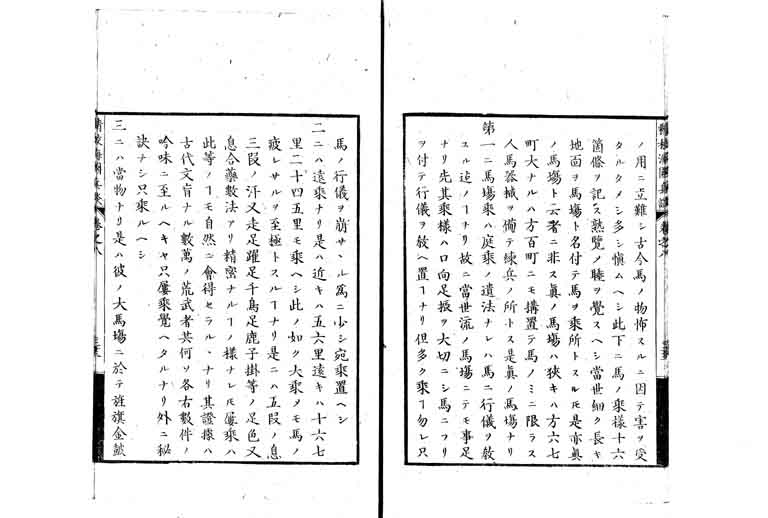 ノ用ニ立難シ古今馬ノ物怖スルニ因テ害ヲ受
タルタメシ多シ愼ムヘシ此下ニ馬ノ乘樣十六
箇條ヲ記ス熟覽ノ睡ヲ覺スヘシ當世細ク長キ
地面ヲ馬塲ト名付テ馬ヲ乘所トスルモ是亦眞
ノ馬塲ト云者ニ非ス眞ノ馬塲ハ狹キハ方六七
町大ナルハ方百町ニモ搆置テ馬ノミニ限ラス
人馬器械ヲ備テ練兵ノ所トス是眞ノ馬塲ナリ
第一ニ馬塲乘ハ庭乘ノ遺法ナレハ馬ニ行儀ヲ敎
スル迄ノヿナリ故ニ當世流ノ馬塲ニテモ事足
ナリ先其乘樣ハ口向足扱ヲ大切ニシ馬ニフリ
ヲ付テ行儀ヲ敎ヘ置ヿナリ但多ク乘ヿ勿レ只
馬ノ行儀ヲ崩サヽル爲ニ少シ宛乘置ヘシ
二ニハ遠乘ナリ是ハ近キハ五六里遠キハ十六七
里二十四五里モ乘ヘシ此ノ如ク大乘メモ馬ノ
疲レサルヲ至極トスルヿナリ是ニハ五段ノ息
三段ノ汗又走足躍足千鳥足鹿子掛等ノ足色又
息合藥數法アリ精密ナルヿノ樣ナレモ屢乘ハ
此等ノヿモ自然ニ會得セラルヽナリ其證據ハ
古代文盲ナル數萬ノ荒武者共何ソ各右數件ノ
吟味ニ至ルヘキヤ只屢乘覺ヘタルナリ外ニ秘
訣ナシ只乘ルヘシ
三ニハ當物ナリ是ハ彼ノ大馬塲ニ於テ旌旗金皷